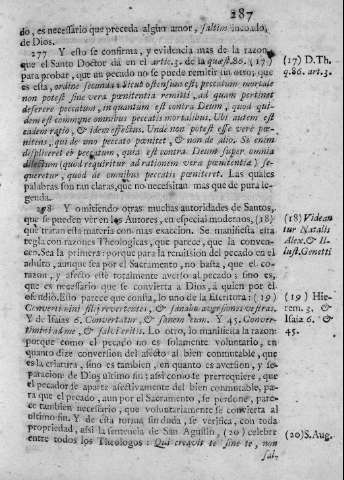 287
do, es necessario que preceda algun amor, saltim incoado,
de Dios.
277 Y esto se confirma, y evidencia mas de la razon,
que el Santo Doctor dà en el artic. 3. de la quæst. 86. (17)
para probar, que un pecado no se puede remitir sin otro; que
es esta, ordine secundo: Situt ostensum est, peccatum mortale
non potest sine vera pœnitentia remitti, ad quam pertinet
deserere peccatum, in quantum est contra Deum, quod quidem
est commune omnibus peccatis mortalibus. Ubi autem est
eadem ratio, & idem effectus. Unde non potest esse verè pœnitens,
qui de uno peccato pœnitet, & non de alio. Si enim
displiceret ei peccatum, quia est contra Deum super omnia
dilectum (quod requiritur ad rationem veræ pœnitentiæ) sequeretur,
quod de omnibus peccatis pœniteret. Las quales
palabras son tan claras, que no necesitan mas que de pura legenda.
(17) D. Th.
q. 86. art. 3.
278 Y omitiendo otras muchas autoridades de Santos,
que se pueden vèr en los Autores, en especial modernos, (18)
que tratan esta materia con mas exaccion. Se manifiesta esta
regla con razones Theologicas, que parece, que la convencen.
Sea la primera: porque para la remission del pecado en el
adulto, aunque sea por el Sacramento, no basta, que el corazon,
y afecto estè totalmente averso al pecado; sino es,
que es necessario que se convierta à Dios, à quien por èl
ofendiò. Esto parece que consta, lo uno de la Escritura: (19)
Convertimini filij revertentes, & sanabo aversiones vestras.
Y de Isaias 6. Convertatur, & sanem eum. Y 45. Convertimini
ad me, & salvi eritis. Lo otro, lo manifiesta la razon:
porque como el pecado no es solamente voluntario, en
quanto dize conversion del afecto al bien conmutable, que
es la criatura, sino es tambien, en quanto es aversion, y separacion
de Dios ultimo fin; assi como se prerrequiere, que
el pecador se aparte afectivamente del bien conmutable, para
que el pecado, aun por el Sacramento, se perdone, parece
tambien necessario, que voluntariamente se convierta al
ultimo fin. Y de esta forma sin duda, se verifica, con toda
propriedad, assi la sentencia de San Agustin, (20) celebre
entre todos los Theologos: Qui creavit te sine te, non
sal-
(18) Videantur Natalis
Alex. & Illust. Genetti
(19) Hierem. 3. &
Isaia 6. &
45.
(20) S. Aug.